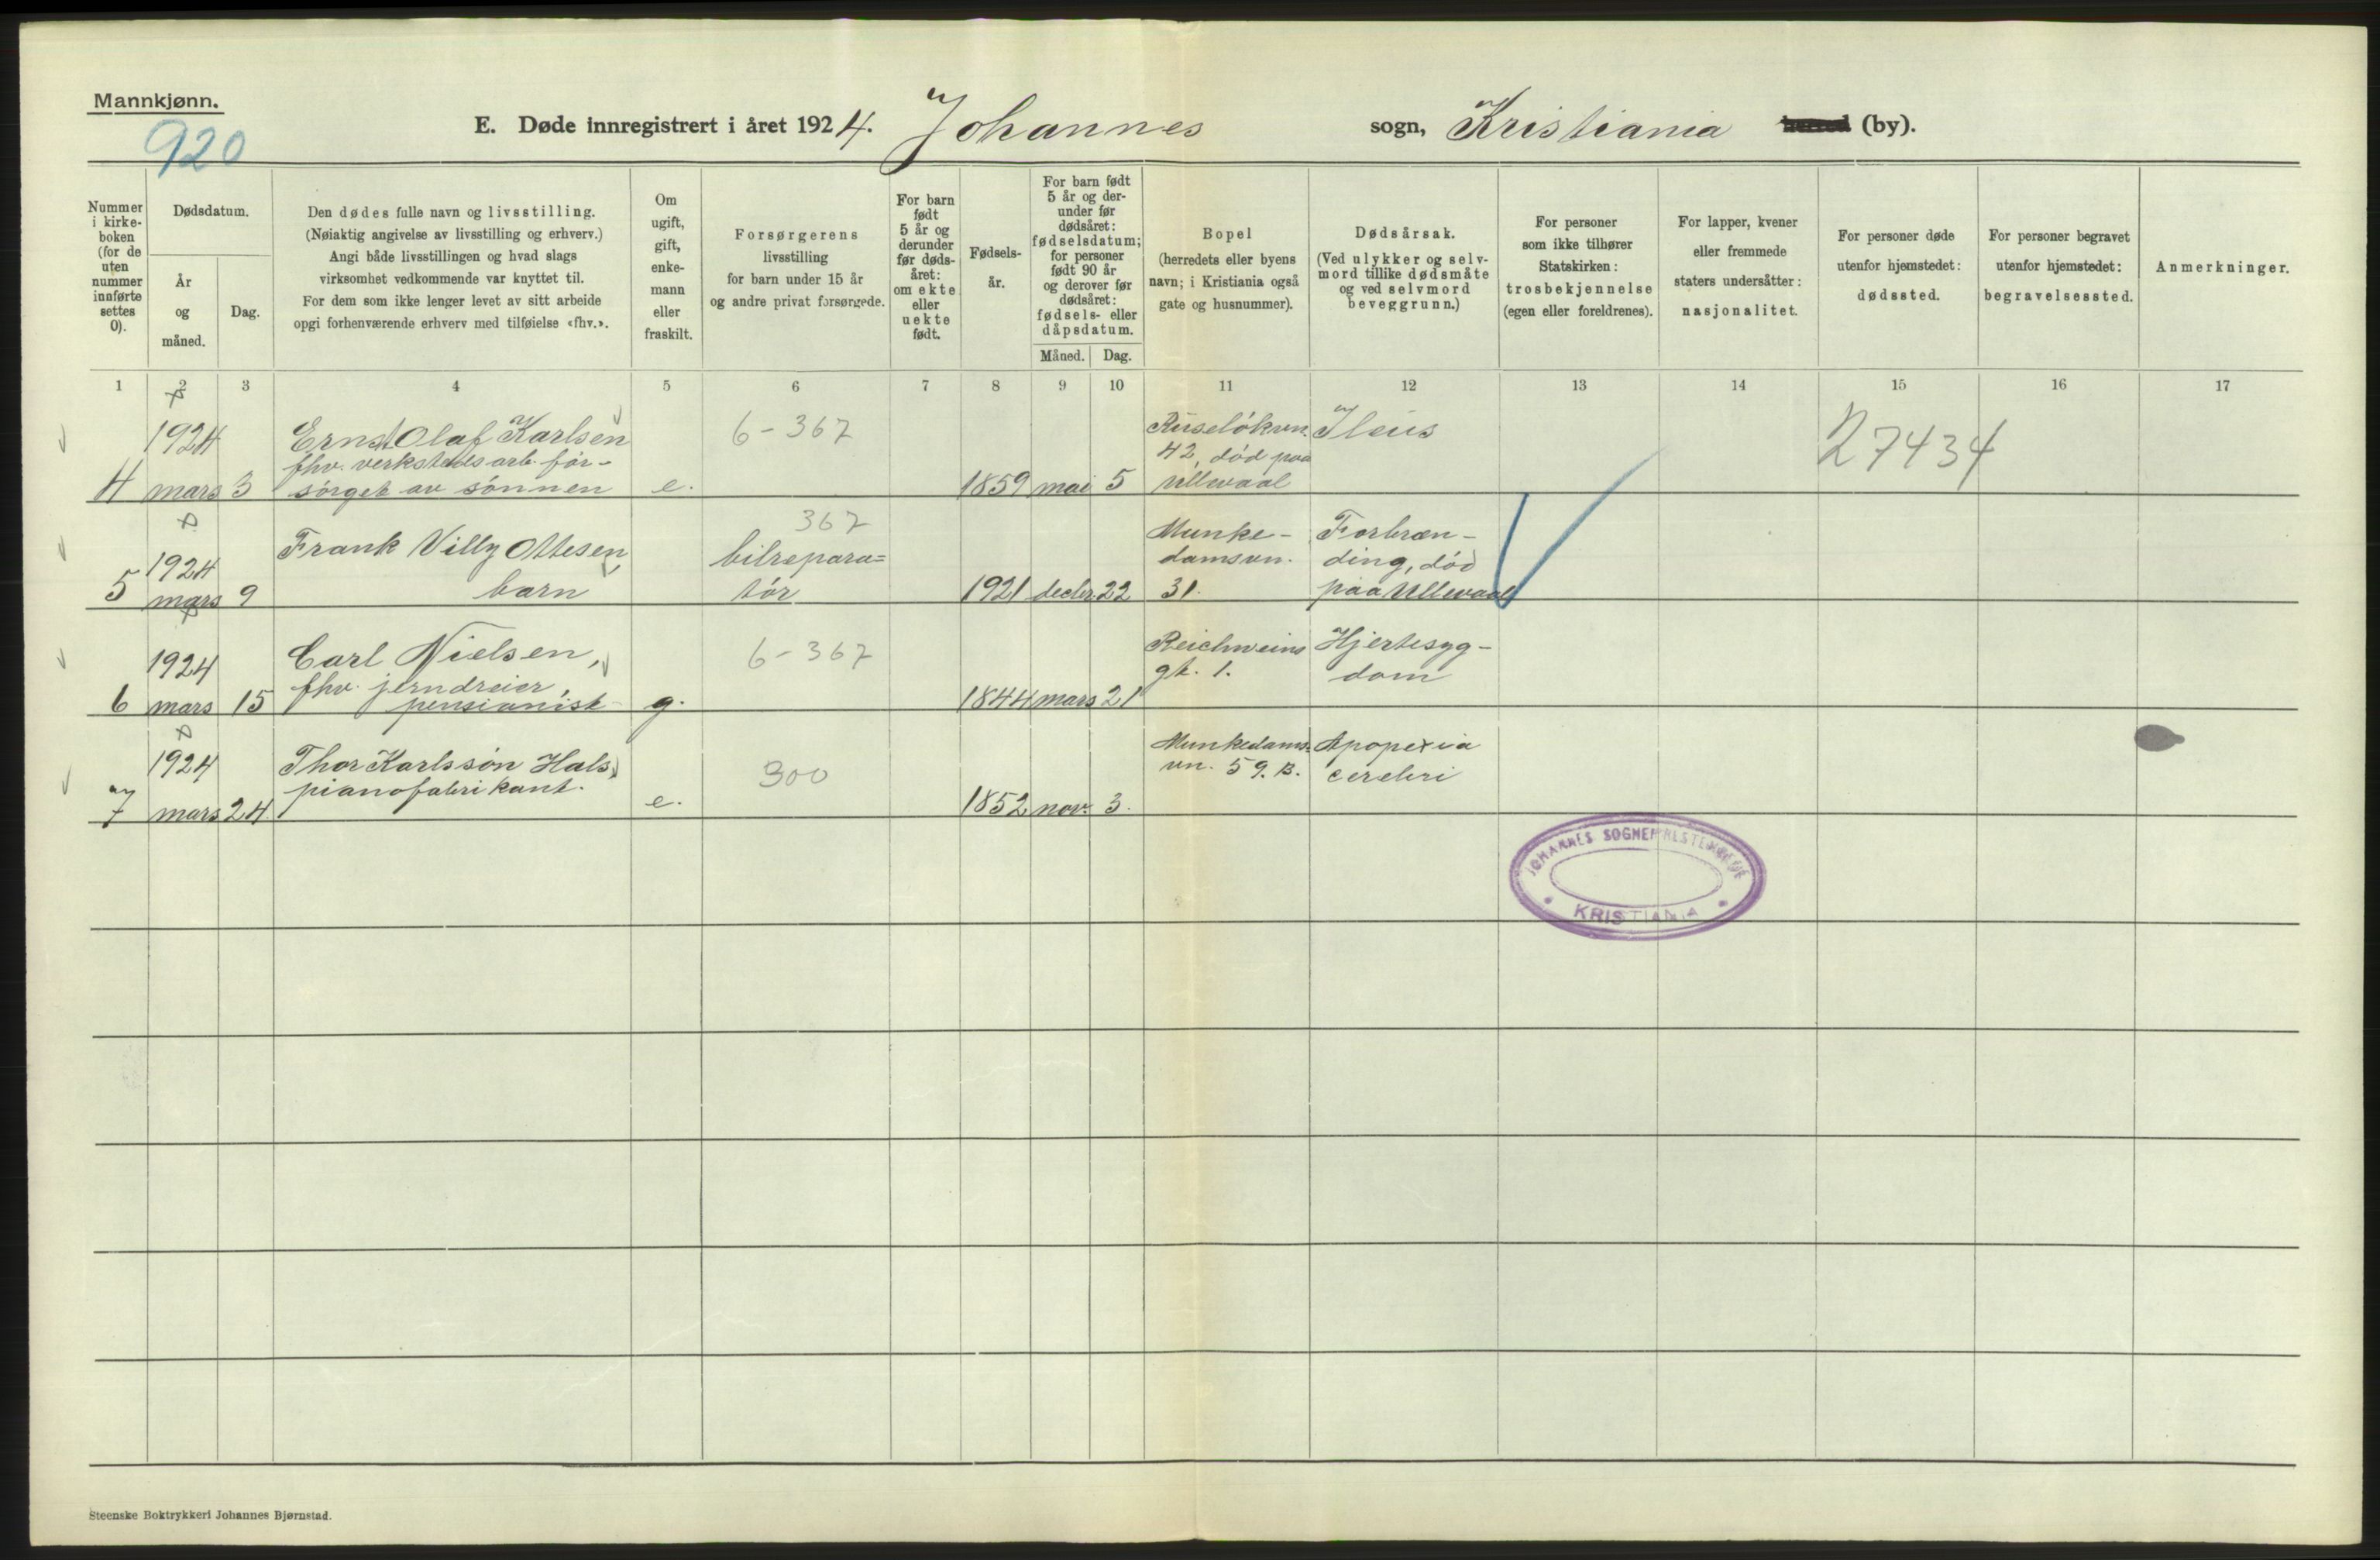 Mannkjønn.
920
E. Døde innregistrert i året 1924. Johannes sogn, Kristiania (by).
Nummer i kirke-boken (for de uten nummer innførte settes 0).
Dødsdatum.
År og måned.
Dag.
Den dødes fulle navn og livsstilling.
(Nøiaktig angivelse av livsstilling og erhverv.)
Angi både livsstillingen og hvad slags
virksomhet vedkommende var knyttet til.
For dem som ikke lenger levet av sitt arbeide
opgi forhenværende erhverv med tilføielse «fhv.».
Om ugift, gift, enke-mann eller fraskilt.
Forsørgerens
livsstilling
for barn under 15 år
og andre privat forsørgede.
For barn født 5 år og derunder før døds-året: om ekte eller uekte født.
Fødsels-år.
For barn født 5 år og der-under før dødsåret: fødselsdatum; for personer født 90 år og derover før dødsåret: fødsels- eller dåpsdatum.
Måned. Dag.
Bopel
(herredets eller byens
navn; i Kristiania også
gate og husnummer).
Dødsårsak.
(Ved ulykker og selv-
mord tillike dødsmåte
og ved selvmord
beveggrunn.)
For personer
som ikke tilhører
Statskirken:
trosbekjennelse
(egen eller foreldrenes).
For lapper, kvener
eller fremmede
staters undersåtter:
nasjonalitet.
For personer døde
utenfor hjemstedet:
dødssted.
For personer begravet
utenfor hjemstedet:
begravelsessted.
Anmerkninger.
1 2 3 4 5 6 7 8 9 10 11 12 13 14 15 16 17
1924 Ernst Olaf Karlsen 6-367 Ruseløkvn. Ileus 27434
fhv. verkstedsarb. for- 42, død paa
4 mars 3 sørget av sønnen e. 1859 mai 5 Ullevaal
367 Munke- Forbræn-
1924 Frank Villy Ottesen, bilrepara= damsvn. ding, død
5 mars 9 barn tør 1921 decbr. 22 31. paa Ullevaal
1924 Carl Nielsen, 6-367 Reichweins Hjertesyg-
fhv. jerndreier, gt. 1. dom
6 mars 15 pensionist g. 1844 mars 21
1924 Thor Karlssøn Hals, 300 Munkedams- Apopexia
pianofabrikant. vn. 59. B. cerebri
7 mars 24. e. 1852 nov. 3.
JOHANNES SOGNEPRESTEMBEDE
KRISTIANIA
Steenske Boktrykkeri Johannes Bjørnstad.